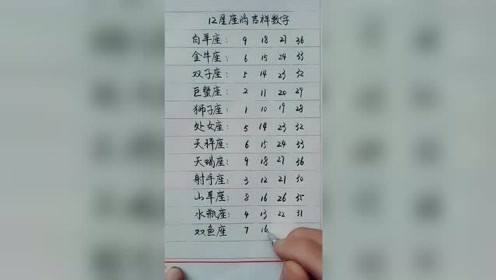 12星座的吉祥数字
白羊座: 9 18 27 36
金牛座: 6 15 24 33
双子座: 5 14 23 32
巨蟹座: 2 11 20 29
狮子座: 1 10 19 28
处女座: 5 14 23 32
天秤座: 6 15 24 33
天蝎座: 9 18 27 36
射手座: 3 12 21 30
山羊座: 8 16 26 35
水瓶座: 4 13 22 31
双鱼座 7 16